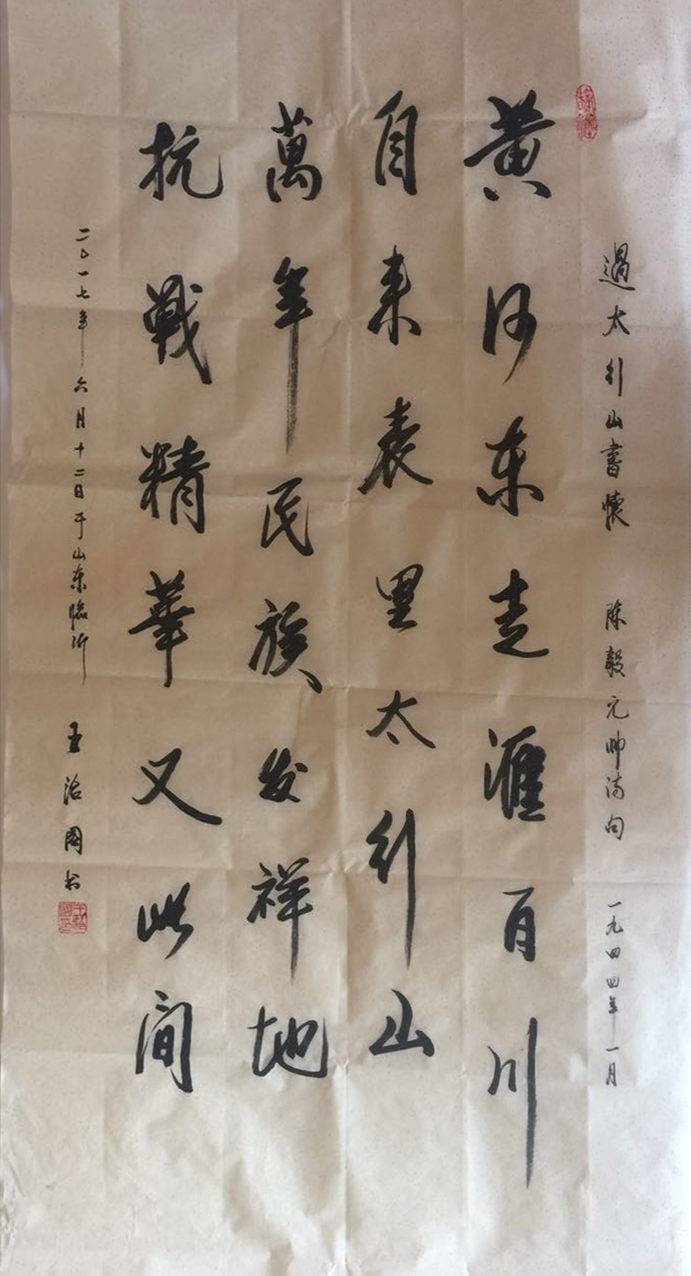 過太行山書懷 陈毅元帅诗句 一九四四年一月
黄河东走滙百川
自来表里太行山
萬年民族发祥地
抗戰精華又此间
二〇一七年六月十二日于山东臨沂
王治國书